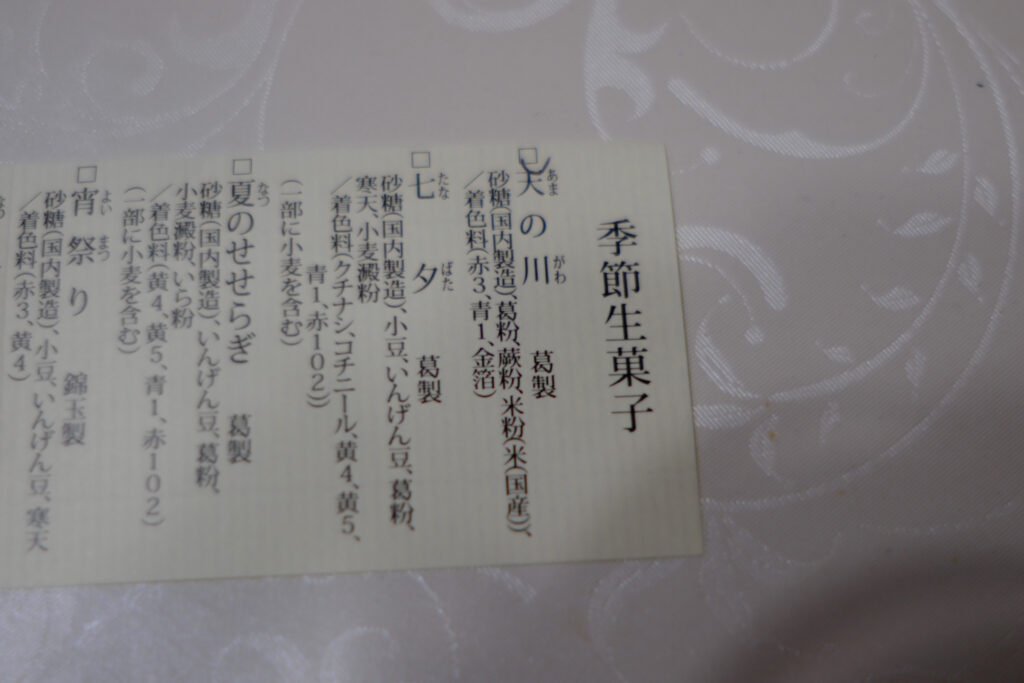 季節生菓子
□天の川 葛製
あま がわ
砂糖(国内製造)、葛粉、蕨粉、米粉(米(国産))、
/着色料(赤3、青1、金箔)
□七夕 葛製
たな ばた
砂糖(国内製造)、小豆、いんげん豆、葛粉、
寒天、小麦澱粉
/着色料(クチナシ、コチニール、黄4、黄5、
青1、赤102)
(一部に小麦を含む)
□夏のせせらぎ 葛製
なつ
砂糖(国内製造)、いんげん豆、葛粉、
小麦澱粉、いら粉
/着色料(黄4、黄5、青1、赤102)
(一部に小麦を含む)
□宵祭り 錦玉製
よい まつ
砂糖(国内製造)、小豆、いんげん豆、寒天
/着色料(赤3、黄4)